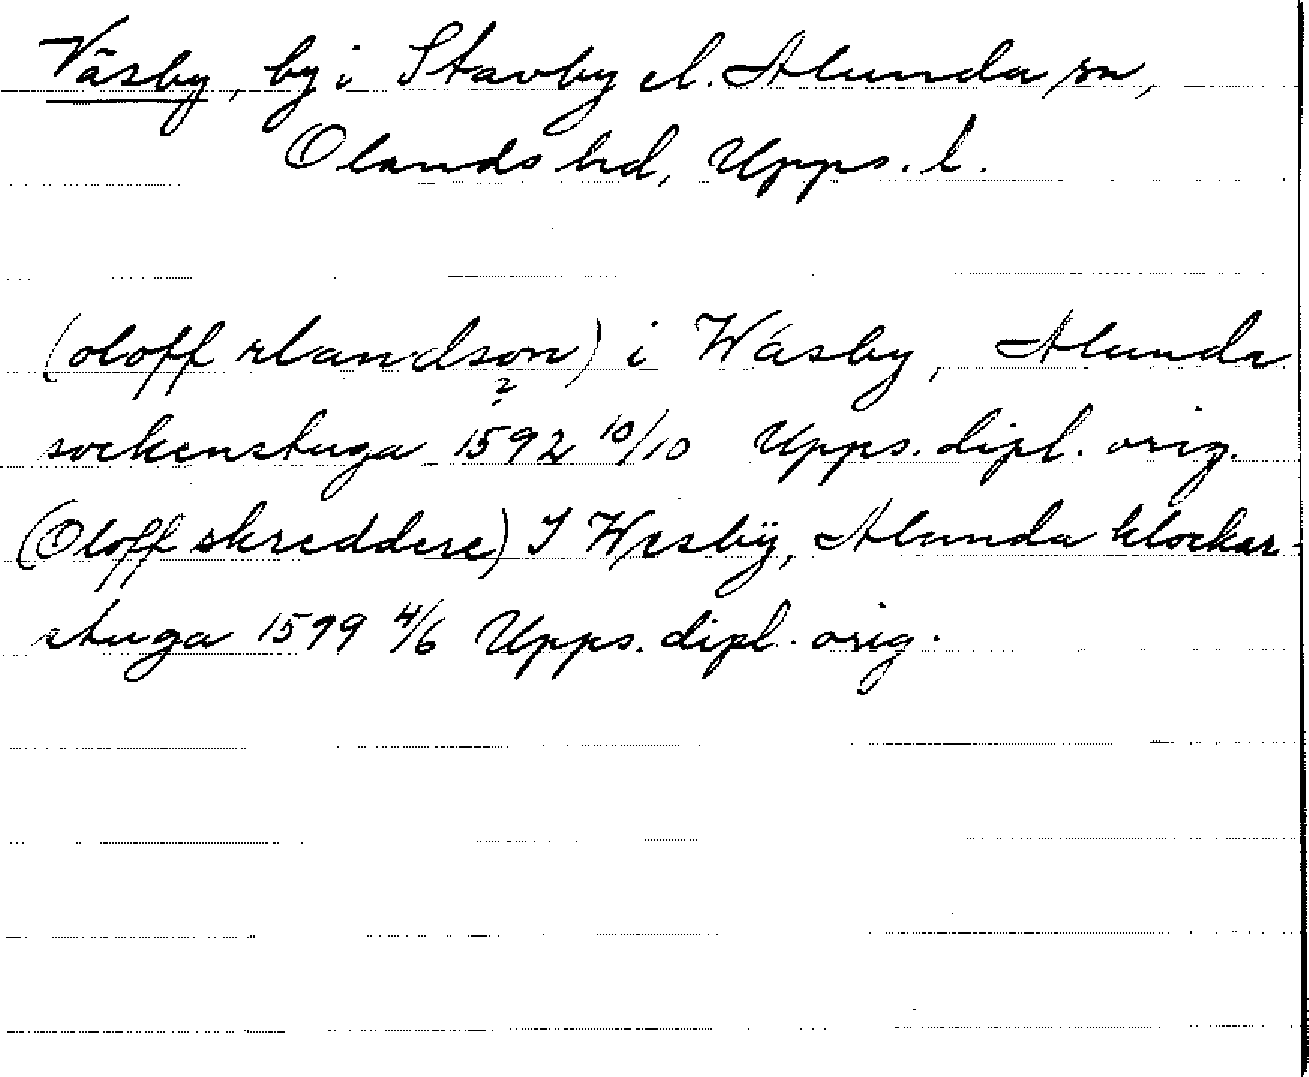 Väsby, by i Stavby el. Alunda sn,
Olands hd, Upps. l.
(oloff rlandson) i Wäsby, Alunda
?
sockenstuga 1592 10/10 Upps. dipl. orig.
(Oloff skreddere) I Wesbÿ, Alunda klockar-
stuga 1599 4/6 Upps. dipl. orig.